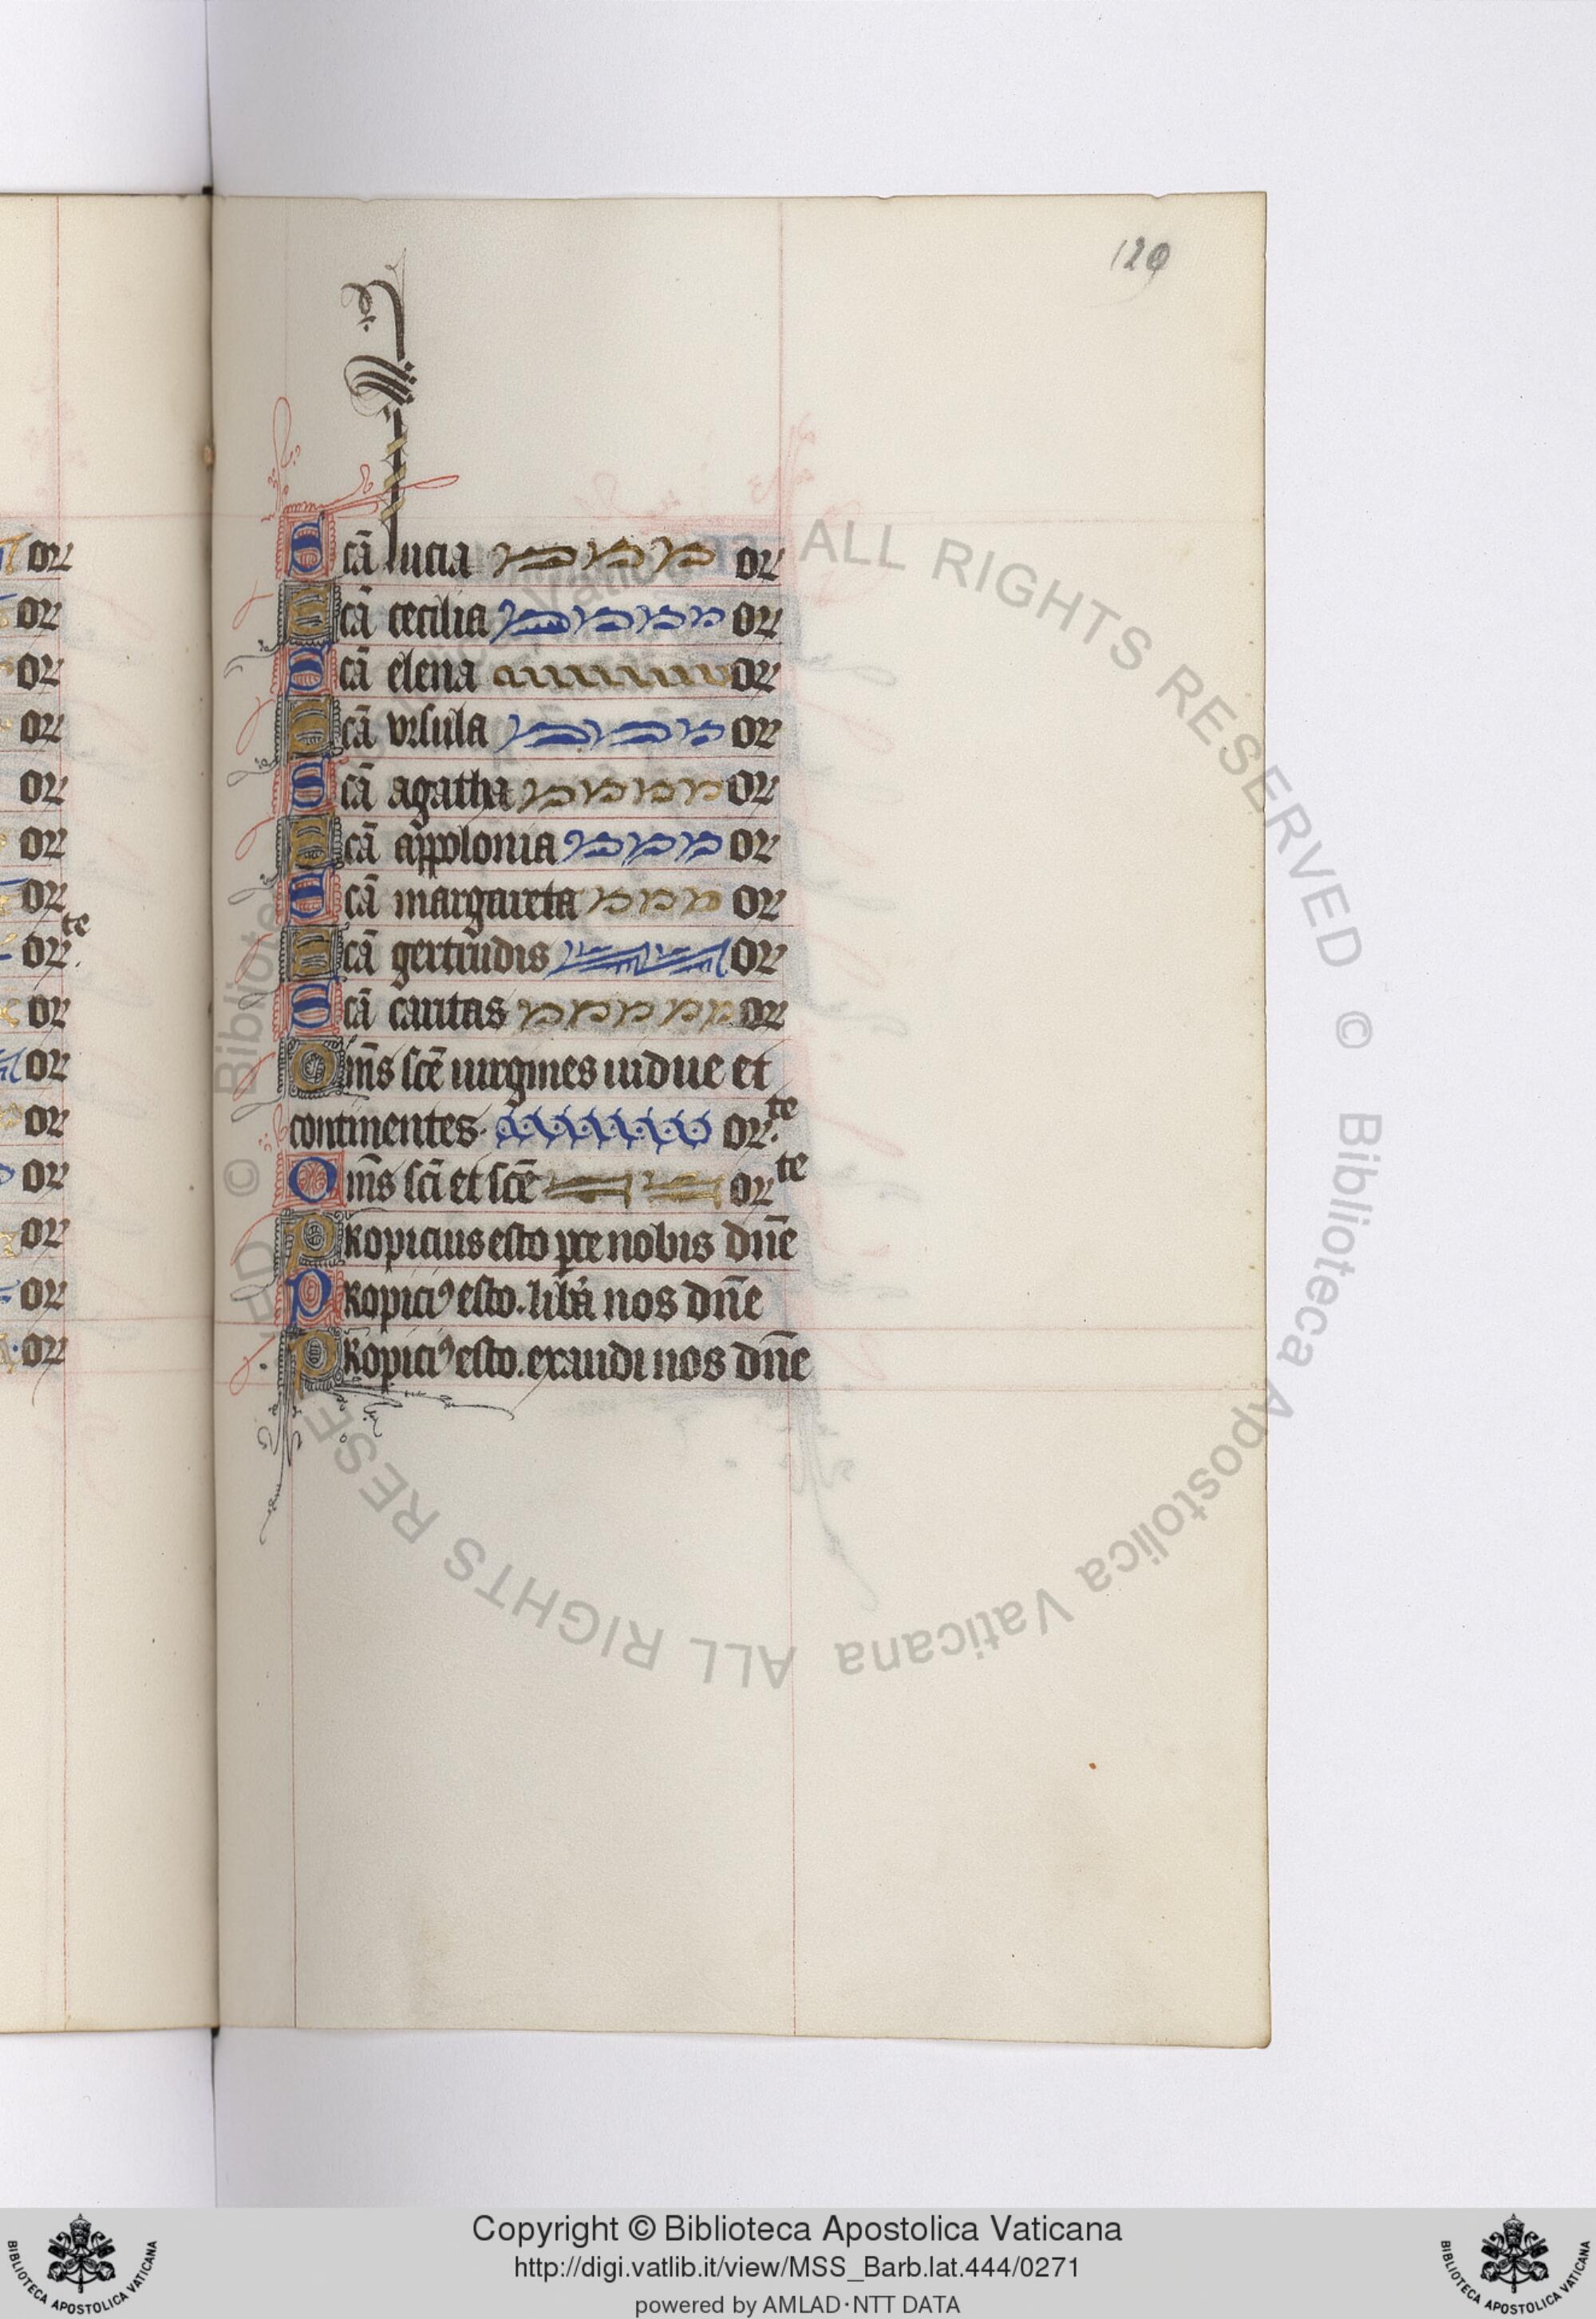 129
Scā lucia or
Scā cecilia or
Scā elena or
Scā vrsula or
Scā agatha or
Scā appolonia or
Scā margareta or
Scā gertrudis or
Scā caritas or
Om̄s scē uirgines uidue et
continentes. or.te
Om̄s scī et scē or te
PRopicius esto pce nobis dn̄e
PRopiciꝰ esto. liba nos dn̄e
PRopiciꝰ esto. exaudi nos dn̄e
or
or
or
or
or
or
or
or.te
or
or
or
or
or
or
or
© Biblioteca Apostolica Vaticana ALL RIGHTS RESERVED
Copyright © Biblioteca Apostolica Vaticana
http://digi.vatlib.it/view/MSS_Barb.lat.444/0271
powered by AMLAD·NTT DATA
BIBLIOTECA APOSTOLICA VATICANA
BIBLIOTECA APOSTOLICA VATICANA